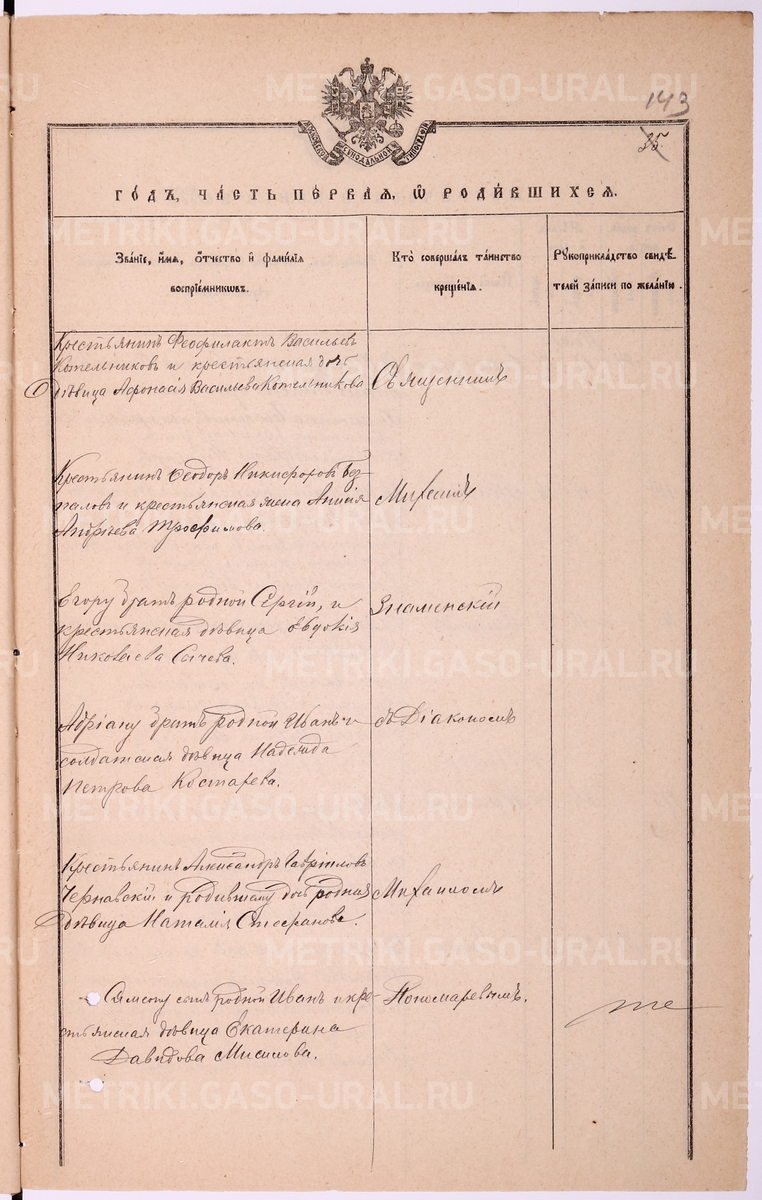 METRIKI.GASO-URAL.RU
143
35.
МОСКОВСКОЙ СИНОДАЛЬНОЙ ТИПОГРАФІИ
ГОДЪ, ЧАСТЬ ПЕРВАЯ, Ѿ РОДИВШИХСЯ.
Званіе, имя, отчество и фамилія
воспріемниковъ.
Кто совершалъ таинство
крещенія.
Рукоприкладство свидѣ-
телей записи по желанію.
Крестьянинъ Феофилактъ Васильевъ
Котельниковъ и крестьянская дочь
дѣвица Афонасія Васильева Котельникова
Священникъ
Крестьянинъ Ѳеодоръ Никифоровъ Без-
паловъ и крестьянская жена Анисія
Андреева Трофимова.
Михаилъ
Егору братъ родной Сергій, и
крестьянская дѣвица Евдокія
Николаева Сычева.
Знаменскій
Адріану братъ родной Иванъ и
солдатская дѣвица Надежда
Петрова Костарева.
съ Діакономъ
Крестьянинъ Александръ Гавріиловъ
Чернавскій и родившему дочь родная
дѣвица Наталія Стефанова.
Михаиломъ
Самсону сынъ родной Иванъ и кре-
стьянская дѣвица Екатерина
Давидова Мисилова.
Пономаревымъ.
METRIKI.GASO-URAL.RU